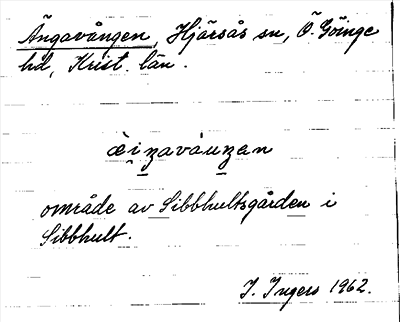 Ängavången, Hjärsås sn, Ö. Göinge
hd, Krist. län.
område av Sibbhultsgården i
Sibbhult.
I. Ingers 1962.